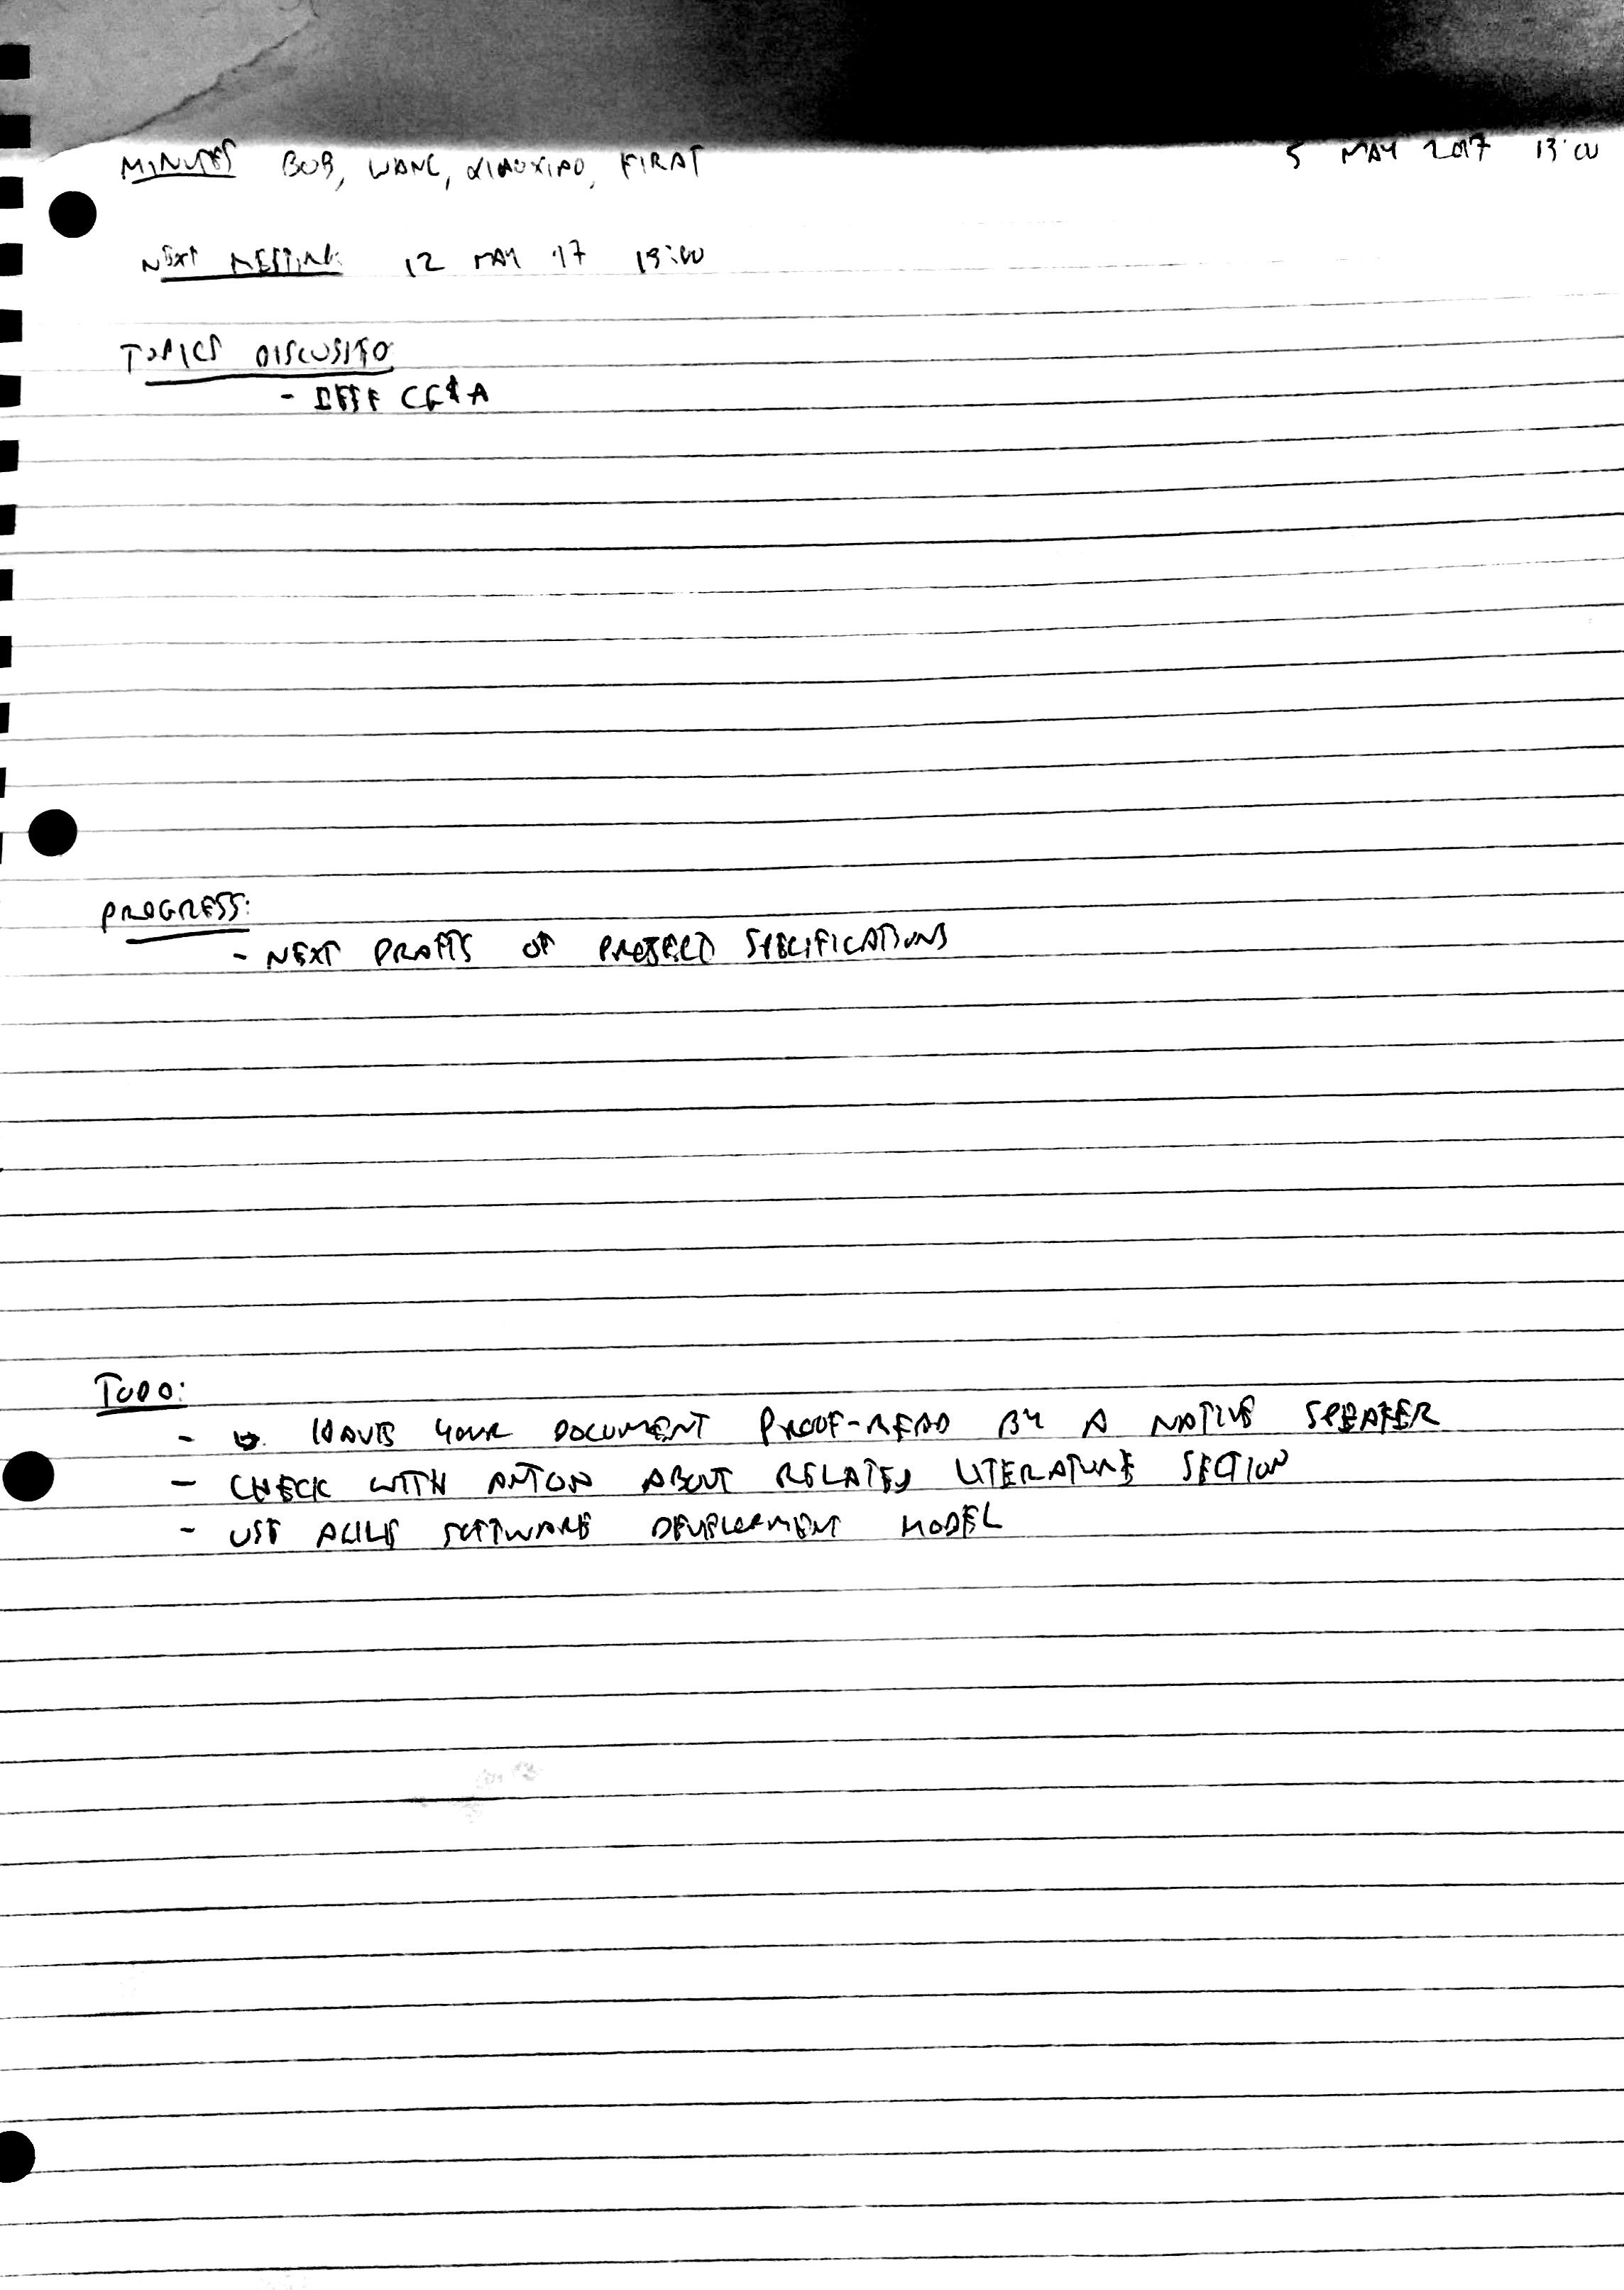 MINUTES BOB, WANG, XIAOXIAO, FIRAT 5 MAY 2017 13:00
NEXT MEETING 12 MAY 17 13:00
TOPICS DISCUSSED
- IEEE CG&A
PROGRESS:
- NEXT DRAFTS OF PROJECT SPECIFICATIONS
TODO:
- HAVE YOUR DOCUMENT PROOF-READ BY A NATIVE SPEAKER
- CHECK WITH ANTON ABOUT RELATED LITERATURE SECTION
- USE AGILE SOFTWARE DEVELOPMENT MODEL